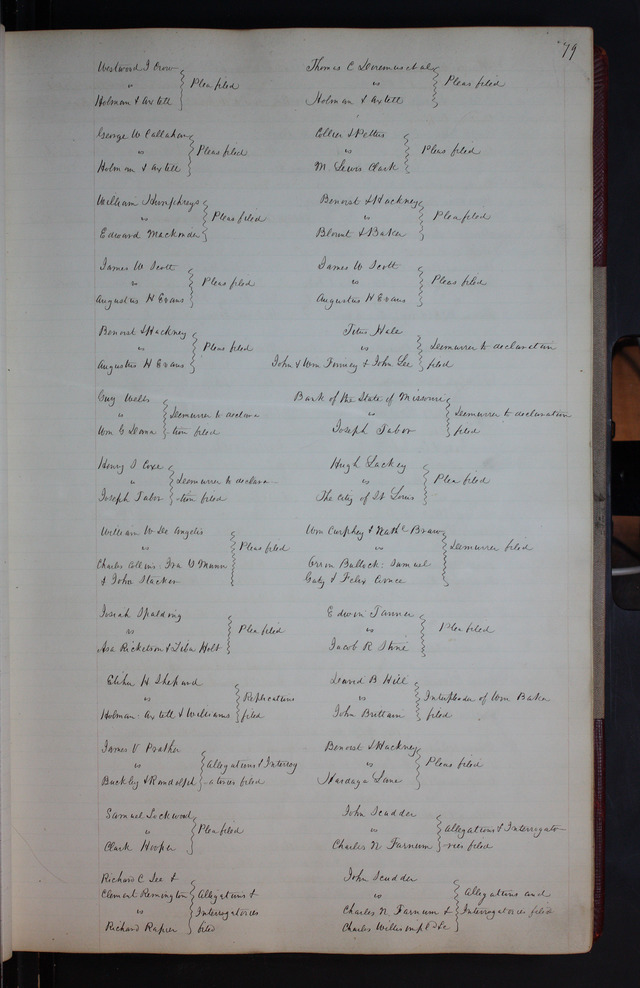 79
Westwood J Crow
vs
Holman & Axtell
Plea filed
Thomas C Doremus et al
vs
Holman & Axtell
Pleas filed
George W Callahan
vs
Holman & Axtell
Pleas filed
Collier & Pettus
vs
M. Lewis Clark
Pleas filed
William Humphreys
vs
Edward Mackonder
Pleas filed
Benoist & Hackney
vs
Blount & Baker
Plea filed
James W Scott
vs
Augustus H Evans
Pleas filed
James W Scott
vs
Augustus H Evans
Pleas filed
Benoist & Hackney
vs
Augustus H Evans
Pleas filed
Titus Hale
vs
John & Wm Finney & John Lee
Demurrer to declaration
filed
Guy Wells
vs
Wm G
Demurrer to declara
-tion filed
Bank of the State of Missouri
vs
Joseph Tabor
Demurrer to declaration
filed
Henry D Coxe
vs
Joseph Tabor
Demurrer to declara-
-tion filed
Hugh Lackey
vs
The City of St Louis
Plea filed
William W De Angelis
vs
Charles Collins: Ira U Munn
& John Stacker
Pleas filed
Wm Curphey & Nathl
vs
Orron Bullock: Samuel
Gaty & Felix Coonce
Demurrer filed
Josiah Spalding
vs
Asa Ricketson & Holt
Plea filed
Edwin Tanner
vs
Jacob R Stine
Plea filed
Elihu H Shepard
vs
Holman: Axtell & Williams
Replications
filed
David B Hill
vs
John Brittain
Interpleader of Wm Baker
filed
James V Prather
vs
Buckley & Randolph
Allegations & Interrog
-atories filed
Benoist & Hackney
vs
Hardage Lane
Pleas filed
Samuel Lockwood
vs
Clark Hooper
Plea filed
John Scudder
vs
Charles N. Farnum
Allegations & Interrogato-
-ries filed
Richard C. Lea &
Clement Remington
vs
Richard Rapier
Allegations &
Interrogatories
filed
John Scudder
vs
Charles N. Farnum &
Charles Willis impld &c
Allegations and
Interrogatories filed